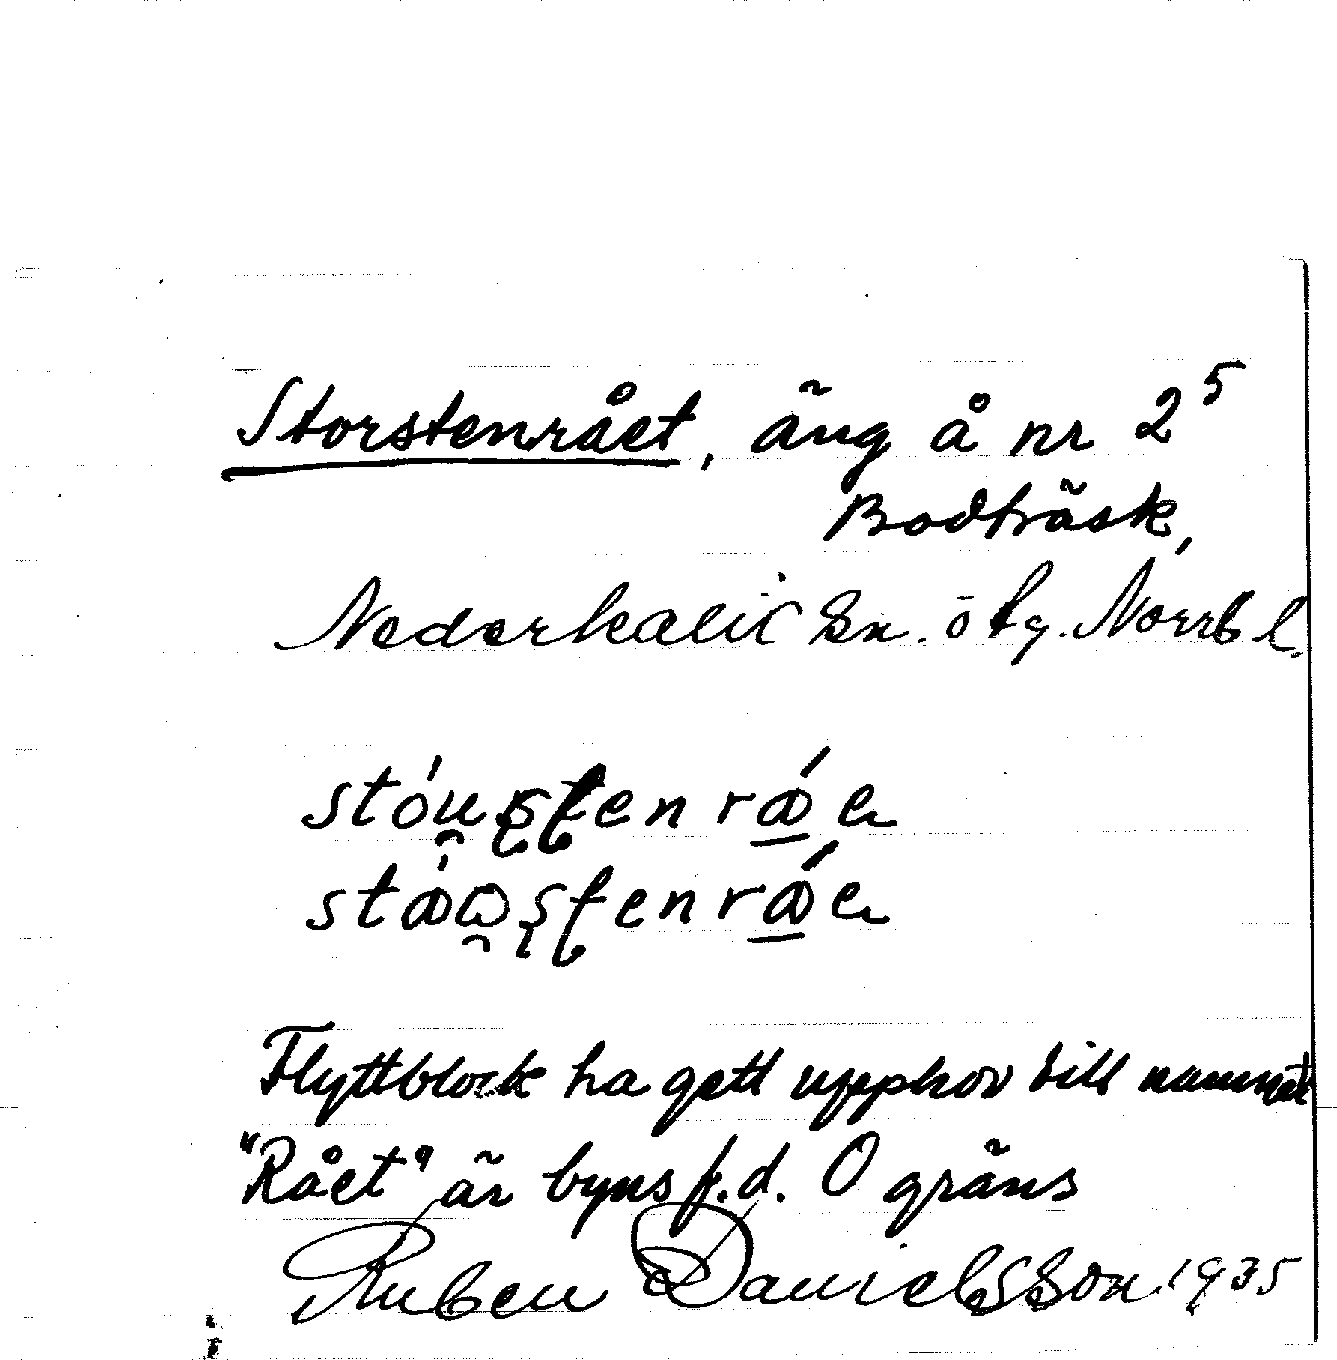 Storstenrået, äng å nr 2⁵
Bodträsk,
Nederkalix Sn. ö tg. Norrb l.
stóu̯ʂʈen rǻ e
Flyttblock ha gett upphov till namnet
"Rået" är byns f.d. O gräns
Ruben Danielsson 1935